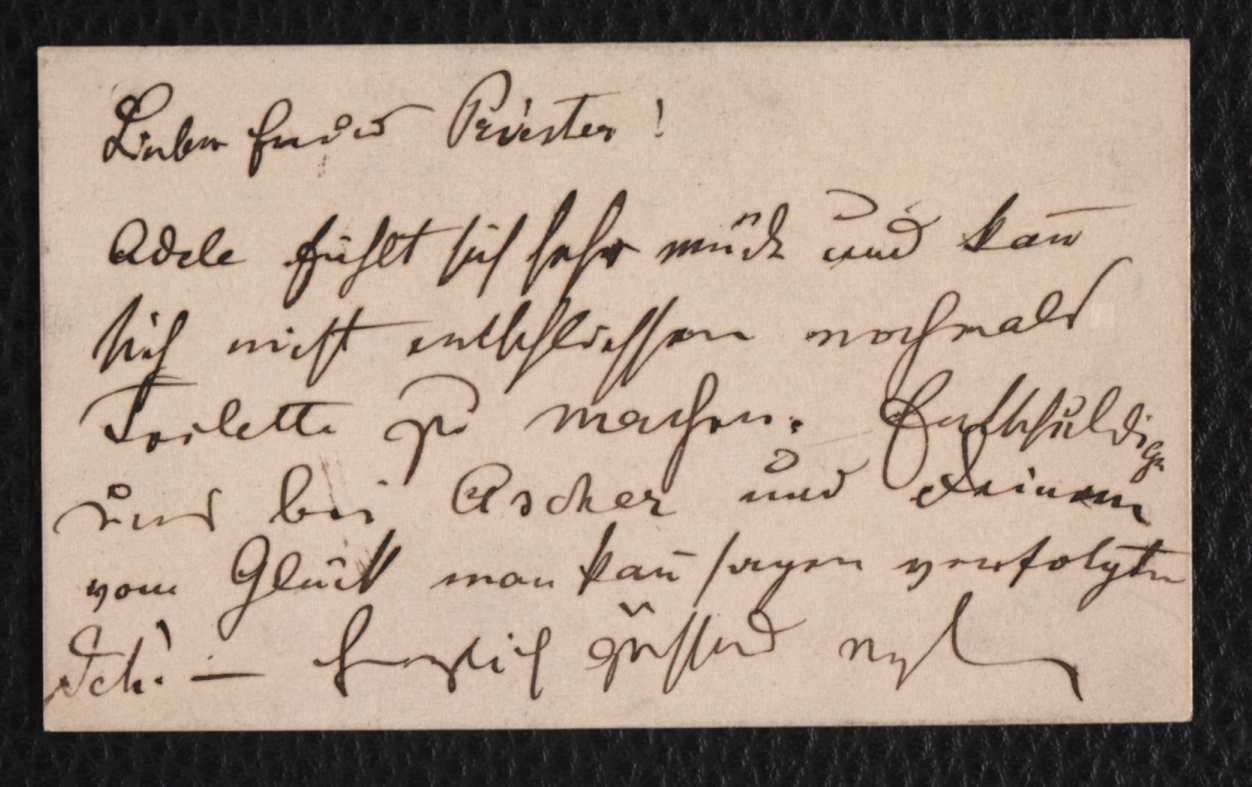 Lieber Freund Priester!
Adele fühlt sich sehr müde und kañ
sich nicht entschliessen nochmals
Toilette zu machen. Entschuldige
uns bei Ascher und Deinem
vom Glück man kañ sagen verfolgten
Ich! — herzlich grüssend